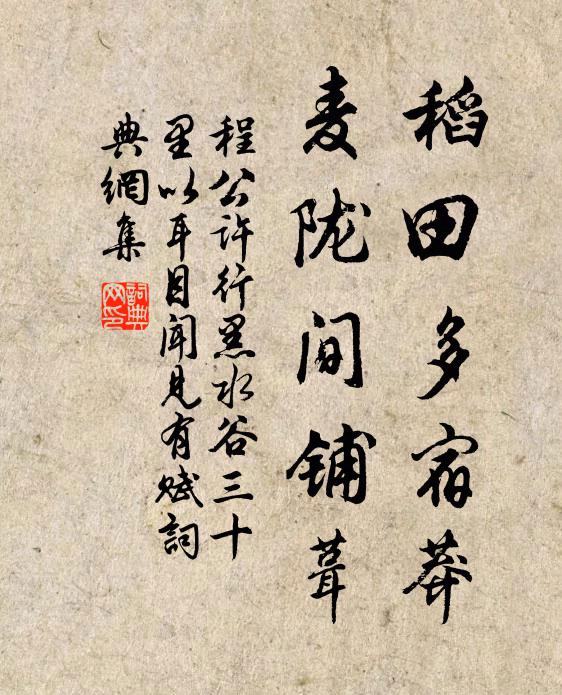 稻田多宿莽
麦陇间铺葺
程公许行黑水谷三十
里以耳目闻见有赋詞
典網集
詞典网印